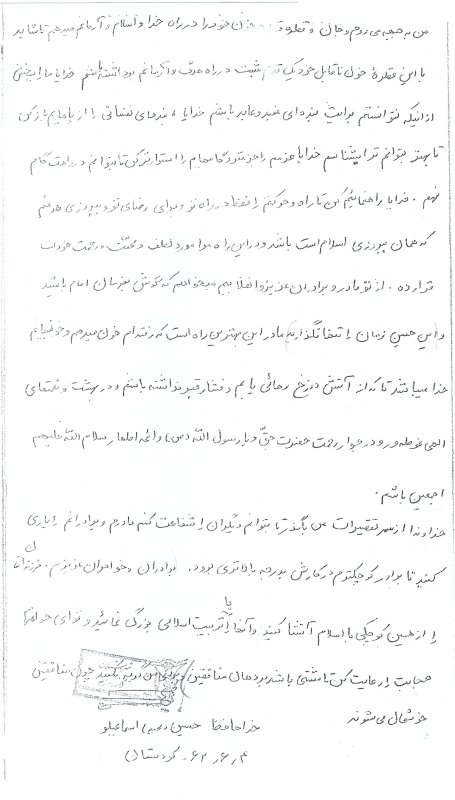 من به جبهه می روم و جان و قطره قطره خون خود را در راه خدا و اسلام و آرمانم میدهم تا شاید
با این قطرهٔ خون ناقابل خود یک قدم مثبت در راه هدف و آرمانم برداشته باشم خدایا ما را ببخش
از اینکه نتوانستم برایت بنده ای مفید و عابد باشم خدایا بندهای نفسانی را از پاهایم باز کن
تا بهتر بتوانم ترا بشناسم خدایا عزمم را جزم و گامهایم را استوارتر کن تا بتوانم در راهت گام
نهم . خدایا راهنمائیم کن تا راه و حرکتم را فقط در راه تو و برای رضای تو و پیروزی هدفم
که همان پیروزی اسلام است باشد و در این راه مرا مورد لطف و محبت و رحمت خودت
قرار ده . از تو مادر و برادران عزیز و انقلابیم میخواهم که گوش بفرمان امام باشید
و این حسین زمان را تنها نگذارید مادر این بهترین راه است که رفته‌ام خون میدهم و خونبهایم
خدا میباشد تا که از آتش دوزخ رهائی یابم و فشار قبر نداشته باشم و در بهشت و نعمتهای
الهی غوطه‌ور و در جوار رحمت حضرت حق و با رسول الله (ص) و ائمه اطهار سلام الله علیهم
اجمعین باشم .
خداوندا از سر تقصیرات من بگذر تا بتوانم دیگران را شفاعت کنم مادرم و برادرانم را یاری
کنید تا برادر کوچکترم در کارش بدرجه بالاتری برود . برادران و خواهران عزیزم . فرزندان
را از همین کوچکی با اسلام آشنا کنید و آنها را با تربیت اسلامی بزرگ نمائید و توای خواهرم
حجابت را رعایت کن تا مشتی باشد بر دهان منافقین و برای من گریه نکنید چون منافقین
خوشحال می شوند
خداحافظ حسین اسماعیلو
۶۲٫۶٫۴ کردستان